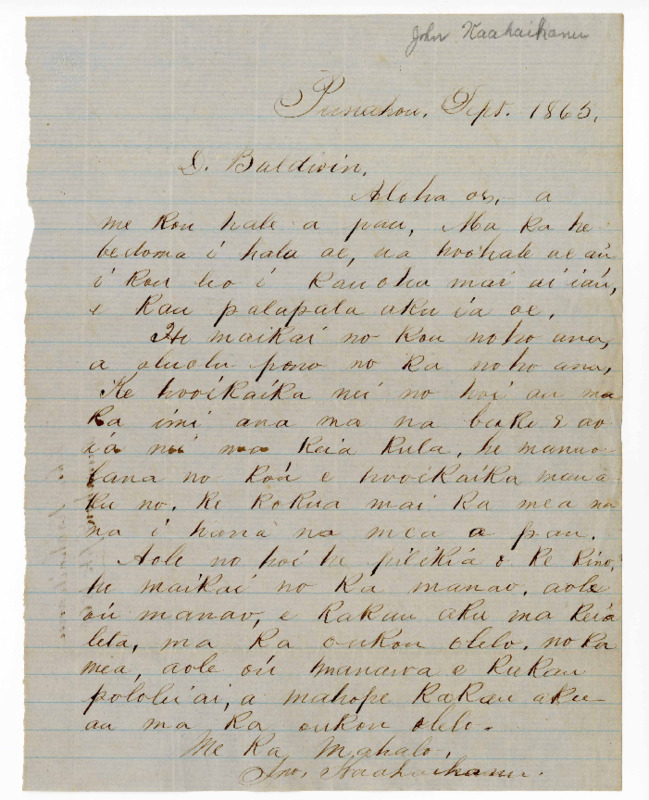 John Kaahaikanu
Punahou, Sept. 1865.
D. Baldwin,
Aloha oe, a
me kou hale a pau, Ma ka he
bedoma i hala ae, ua hoohale ae au
i kou leo i kauoha mai ai iaú,
e kau palapala aku ia oe.
He maikai no kou noho ana,
a oluolu pono no ka noho ana,
Ke hooikaika nui no hoi au ma
ka imi ana ma na buke e ao
ia nei ma keia kula, he manao
lana no koú e hooikaika mau a
ku no, ke kokua mai ka mea na
na i hana na mea a pau.
Aole no hoi he pilikia o ke kino,
he maikai no ka manao, aole
oú manao, e kakau aku ma keia
leta, ma ka oukou olelo, no ka
mea, aole oú manawa e kakau
pololei ai, a mahope kakau aku
au ma ka oukou olelo.
Me ka Mahalo,
Jno, Kaahaikanu.